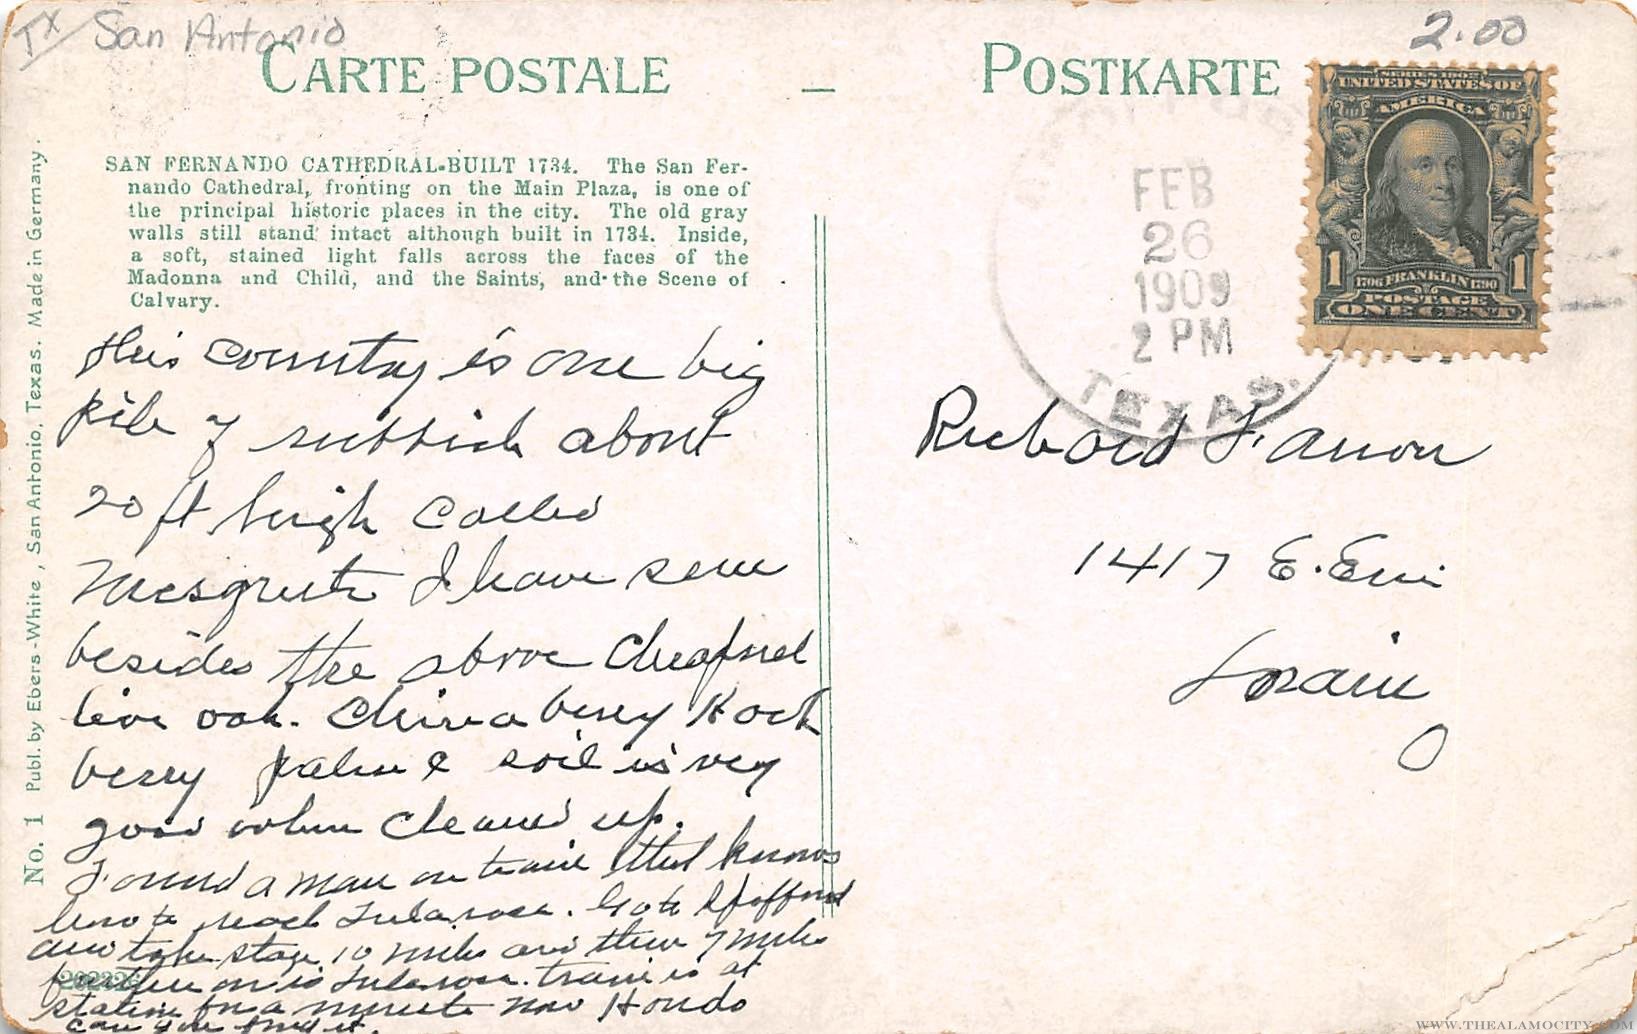 TX San Antonio
2.00
CARTE POSTALE — POSTKARTE
SAN FERNANDO CATHEDRAL-BUILT 1734. The San Fer-
nando Cathedral, fronting on the Main Plaza, is one of
the principal historic places in the city. The old gray
walls still stand intact although built in 1734. Inside,
a soft, stained light falls across the faces of the
Madonna and Child, and the Saints, and the Scene of
Calvary.
No. 1 Publ. by Ebers-White, San Antonio, Texas. Made in Germany.
this country is one big
pile of rubbish about
20 ft heigh called
Mesquite I have seen
besides the above
live oak. China berry Hack
berry palm & soil is very
good when cleaned up.
Found a man on train that knows
how to reach Tularosa. Go to Spofford
and take stage 10 miles and then 7 miles
farther on is Tularosa. train is at
station for a minute now Hondo
can you find it.
202326
FEB
26
1909
2 PM
TEXAS.
SERIES 1902
UNITED STATES OF
AMERICA
1 1706 FRANKLIN 1790 1
POSTAGE
ONE CENT
Richard
1417 E. Erie
Lorain
O
WWW.THEALAMOCITY.COM